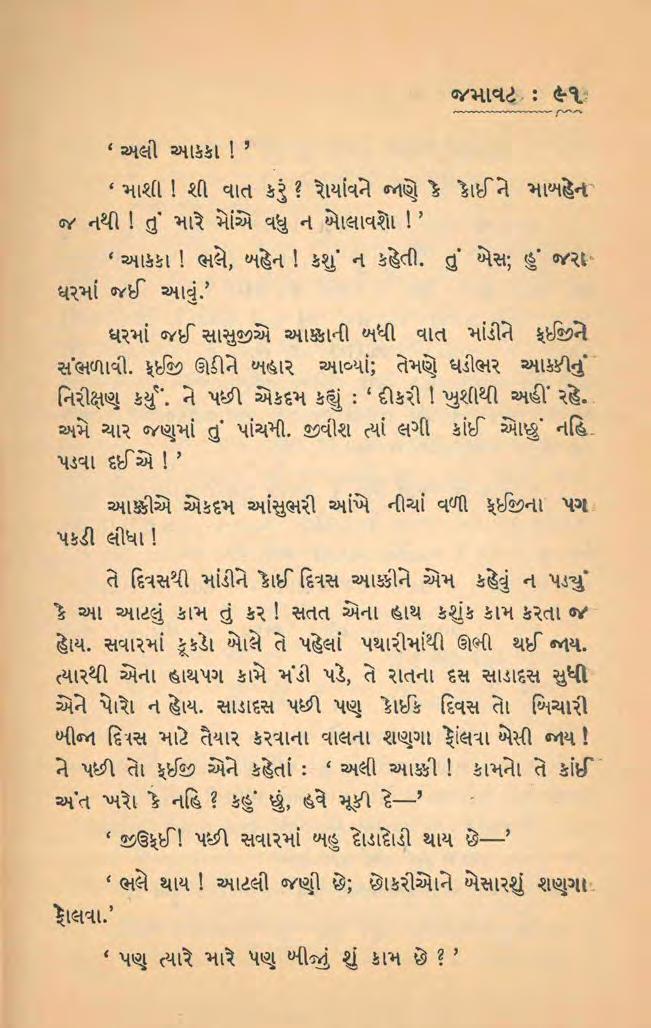 જમાવટ : ૯૧
‘ અલી આક્કા ! ’
‘ માશી ! શી વાત કરું ? રોયાંવને જાણે કે કોઈને માબહેન
જ નથી ! તું મારે મોંએ વધુ ન બોલાવશો ! ’
‘ આક્કા ! ભલે, બહેન ! કશું ન કહેતી. તું બેસ; હું જરા
ઘરમાં જઈ આવું.’
ઘરમાં જઈ સાસુજીએ આક્કાની બધી વાત માંડીને ફઈજીને
સંભળાવી. ફઈજી ઊડીને બહાર આવ્યાં; તેમણે ઘડીભર આક્કીનું
નિરીક્ષણ કર્યું. ને પછી એકદમ કહ્યું : ‘ દીકરી ! ખુશીથી અહીં રહે.
અમે ચાર જણમાં તું પાંચમી. જીવીશ ત્યાં લગી કાંઈ ઓછું નહિ
પડવા દઈએ ! ’
આક્કીએ એકદમ આંસુભરી આંખે નીચાં વળી ફઈજીના પગ
પકડી લીધા !
તે દિવસથી માંડીને કોઈ દિવસ આક્કીને એમ કહેવું ન પડ્યું
કે આ આટલું કામ તું કર ! સતત એના હાથ કશુંક કામ કરતા જ
હોય. સવારમાં કૂકડો બોલે તે પહેલાં પથારીમાંથી ઊભી થઈ જાય.
ત્યારથી એના હાથપગ કામે મંડી પડે, તે રાતના દસ સાડાદસ સુધી
એને પોરો ન હોય. સાડાદસ પછી પણ કોઈક દિવસ તો બિચારી
બીજા દિવસ માટે તૈયાર કરવાના વાલના શણગા ફોલવા બેસી જાય !
ને પછી તો ફઈજી એને કહેતાં : ‘ અલી આક્કી ! કામનો તે કાંઈ
અંત ખરો કે નહિ ? કહું છું, હવે મૂકી દે—’
‘ જીઉફઈ! પછી સવારમાં બહુ દોડાદોડી થાય છે—’
‘ ભલે થાય ! આટલી જણી છે; છોકરીઓને બેસારશું શણગા
ફોલવા.’
‘ પણ ત્યારે મારે પણ બીજું શું કામ છે ? ’